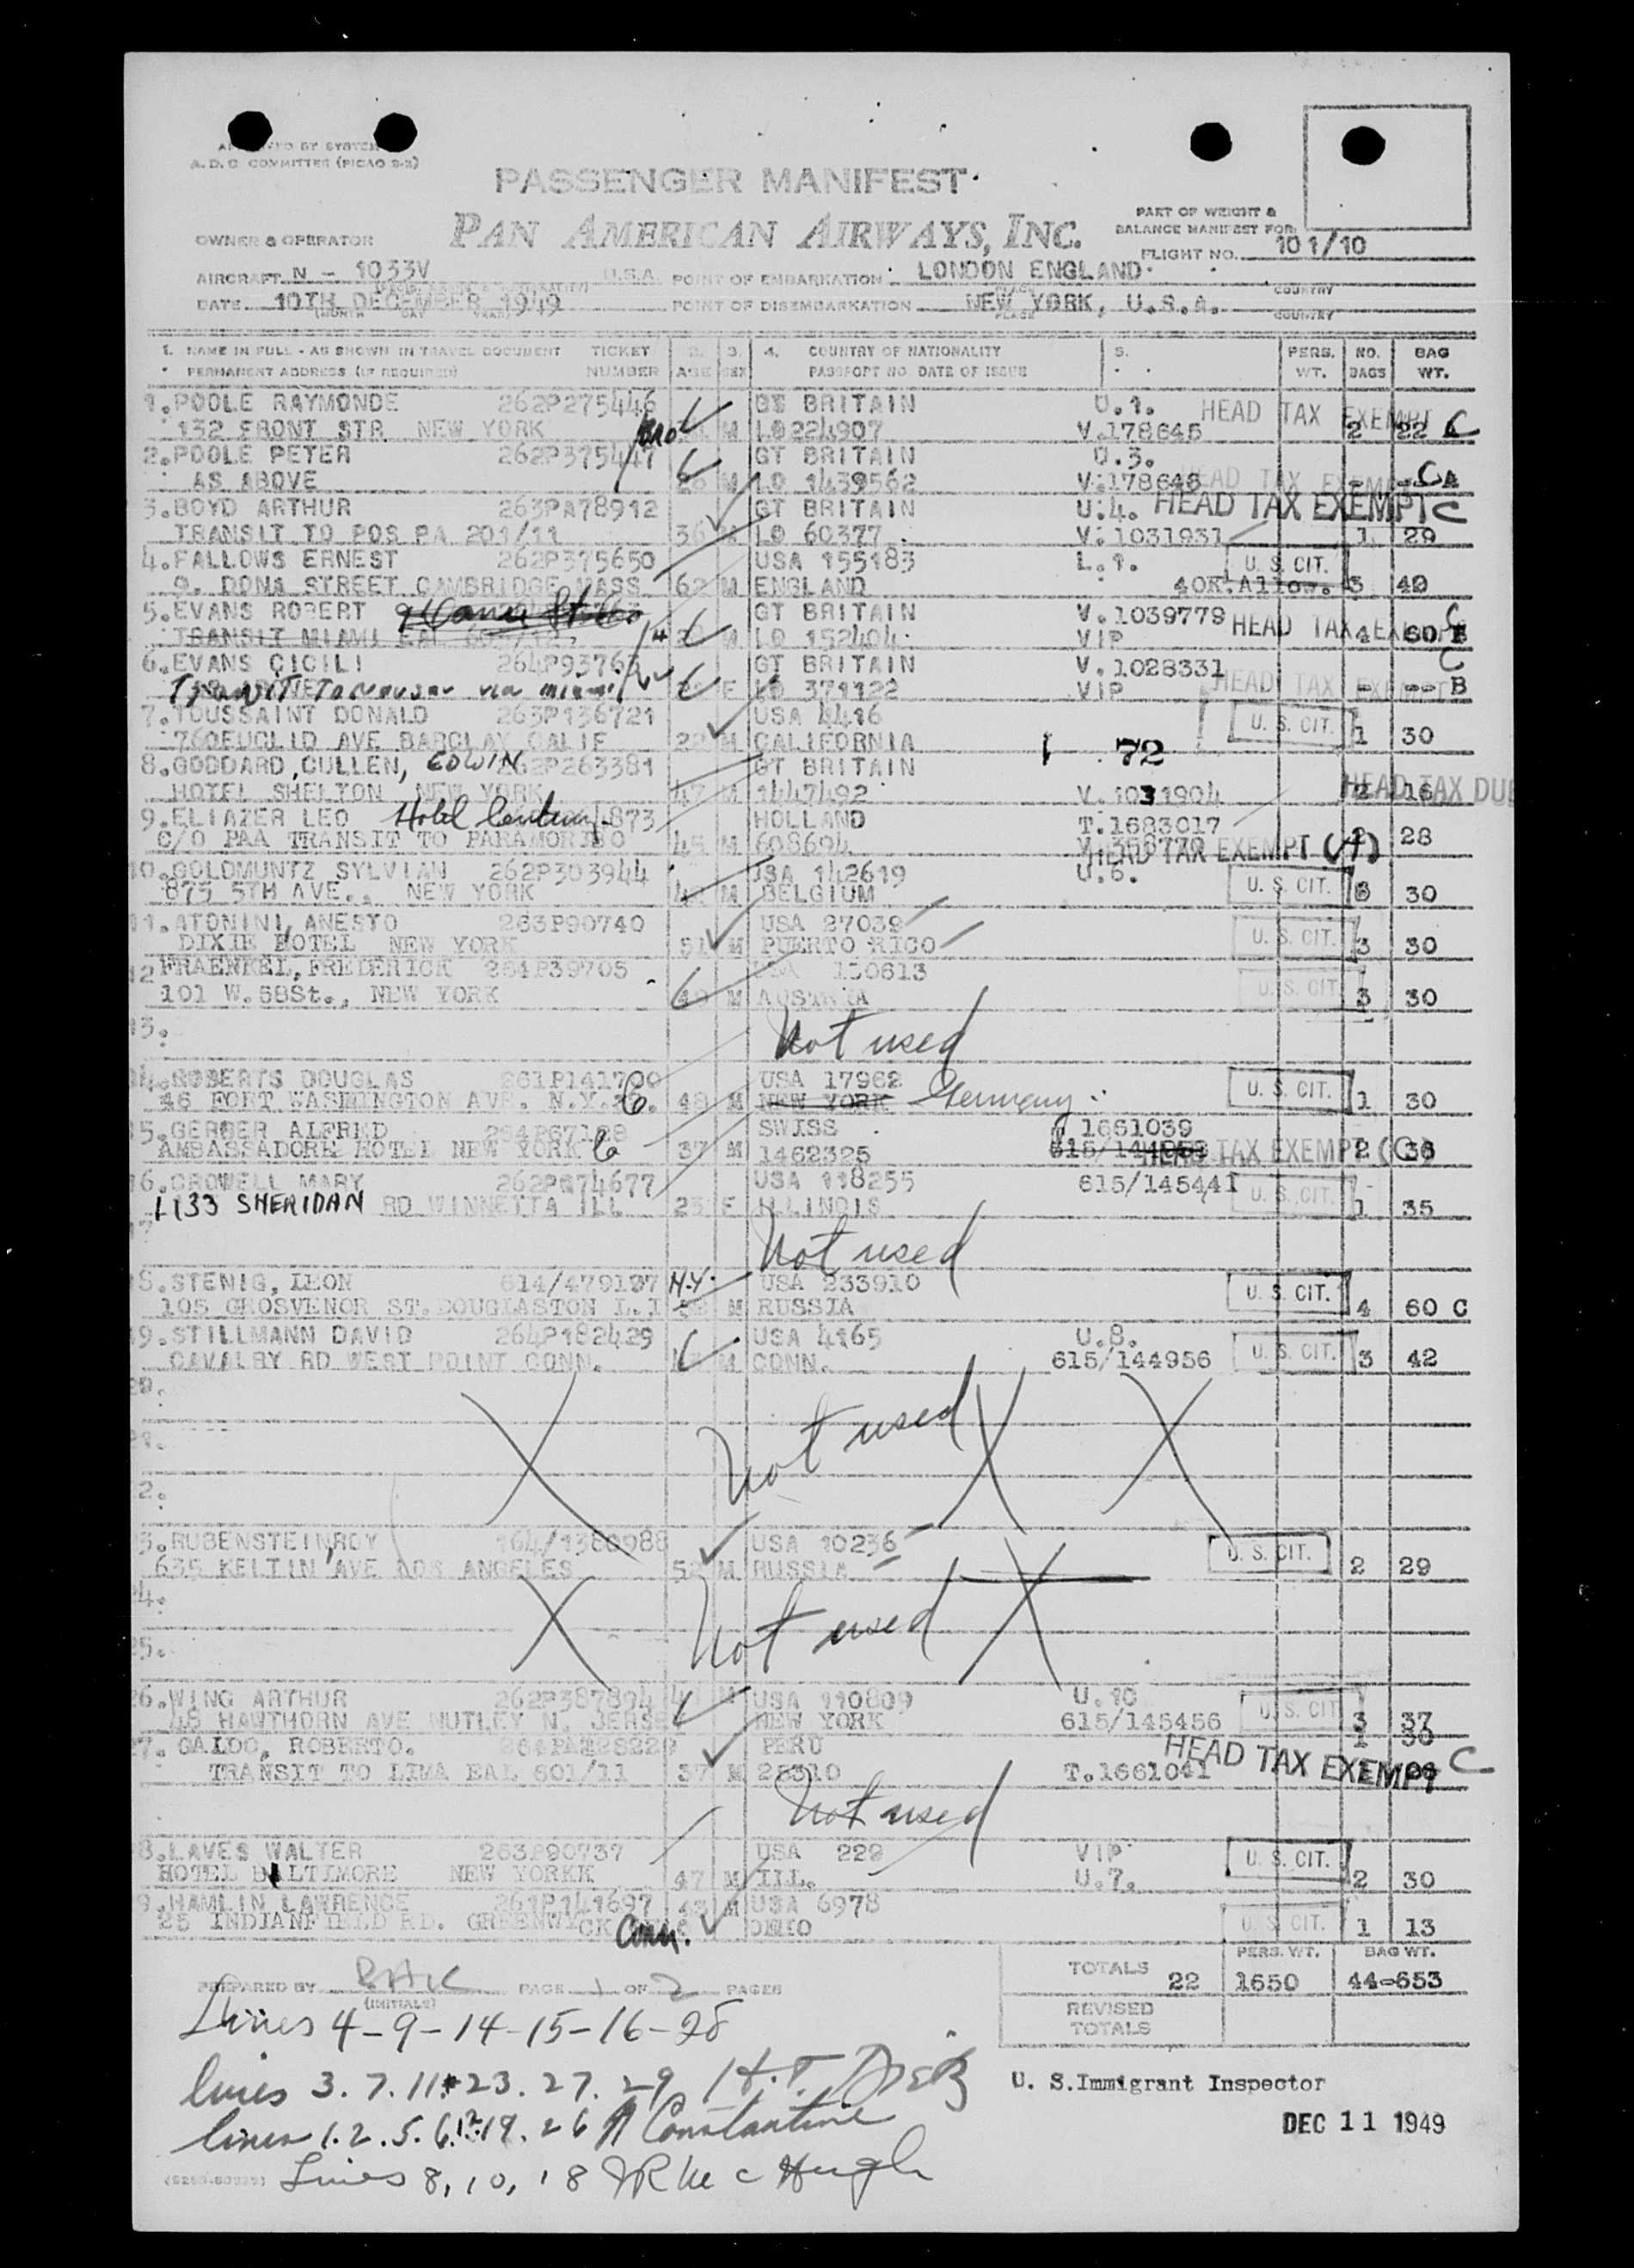 A. D. C COMMITTEE (PICAO S-2)
PASSENGER MANIFEST
PAN AMERICAN AIRWAYS, INC.
PART OF WEIGHT &
BALANCE MANIFEST FOR:
OWNER & OPERATOR
FLIGHT NO. 101/10
AIRCRAFT N - 1033V U.S.A. POINT OF EMBARKATION LONDON ENGLAND
COUNTRY
DATE 10TH DECEMBER 1949 POINT OF DISEMBARKATION NEW YORK, U.S.A.
(MONTH DAY YEAR) PLACE COUNTRY
1. NAME IN FULL - AS SHOWN IN TRAVEL DOCUMENT TICKET 2. 3. 4. COUNTRY OF NATIONALITY 5. PERS. NO. BAG
PERMANENT ADDRESS (IF REQUIRED) NUMBER AGE SEX PASSPORT NO. DATE OF ISSUE WT. BAGS WT.
1. POOLE RAYMONDE 262P275446 GT BRITAIN U.1. HEAD TAX EXEMPT C
132 FRONT STR NEW YORK M LO 224907 V.178645 2 22
2. POOLE PETER 262P375447 GT BRITAIN U.3.
AS ABOVE M LO 1439562 V.178646 HEAD TAX EXEMPT - -- C
3. BOYD ARTHUR 263PA78912 GT BRITAIN U.4. HEAD TAX EXEMPT C
TRANSIT TO POS PA 201/11 36 M LO 60377 V.1031931 1 29
4. FALLOWS ERNEST 262P375650 USA 155183 L.1. U. S. CIT.
9. DONA STREET CAMBRIDGE MASS 62 M ENGLAND 40K.Allow. 3 40
5. EVANS ROBERT GT BRITAIN V.1039779 HEAD TAX EXEMPT C
TRANSIT MIAMI EAL M LO 152404 VIP 4 60 B
6. EVANS CICILI 264P93763 GT BRITAIN V.1028331 C
Transit To via miami F LO 371122 VIP HEAD TAX EXEMPT - -- B
7. TOUSSAINT DONALD 263P136721 USA 4416 U. S. CIT.
760EUCLID AVE BARCLAY CALIF 22 M CALIFORNIA 72 1 30
8. GODDARD, CULLEN, EDWIN 262P263381 GT BRITAIN
HOTEL SHELTON NEW YORK 47 M 1447492 V.1031904 HEAD TAX DUE 2 16
9. ELIAZER LEO Hotel Century 873 HOLLAND T.1683017
C/O PAA TRANSIT TO PARAMORIBO 45 M 608694 HEAD TAX EXEMPT (A) 28
10. GOLDMUNTZ SYLVIAN 262P303944 USA 142619 U.6.
875 5TH AVE., NEW YORK M BELGIUM U. S. CIT. 3 30
11. ATONINI, ANESTO 263P90740 USA 27039
DIXIE HOTEL NEW YORK 51 M PUERTO RICO U. S. CIT. 3 30
12 FRAENKEL, FREDERICK 264P39705 USA 130613
101 W. 58St., NEW YORK 49 M AUSTRIA U. S. CIT. 3 30
13. Not used
14. ROBERTS DOUGLAS 261P141700 USA 17962
46 FORT WASHINGTON AVE. N.Y. 48 M NEW YORK Germany U. S. CIT. 1 30
15. GERBER ALFRED 264P67128 SWISS 1661039
AMBASSADORE HOTEL NEW YORK 37 M 1462325 HEAD TAX EXEMPT (C) 2 36
16. CROWELL MARY 262P374677 USA 118255 615/145441 U. S. CIT.
1133 SHERIDAN RD WINNETTA ILL 23 F ILLINOIS 1 35
Not used
18. STENIG, LEON 614/479197 N.Y. USA 233910 U. S. CIT.
105 GROSVENOR ST. DOUGLASTON L. I M RUSSIA 4 60 C
19. STILLMANN DAVID 264P182429 USA 4165 U.8.
CAVALRY RD WEST POINT CONN. M CONN. 615/144956 U. S. CIT. 3 42
20.
21. Not used
22.
23. RUBENSTEIN, ROY 164/1380988 USA 10236 U. S. CIT.
635 KELTIN AVE LOS ANGELES 52 M RUSSIA 2 29
24.
25. Not used
26. WING ARTHUR 262P387894 M USA 110809 U.10 U. S. CIT
48 HAWTHORN AVE NUTLEY N. JERSE NEW YORK 615/145456 3 37
27. GALDO, ROBERTO. PERU HEAD TAX EXEMPT C
TRANSIT TO LIMA EAL 601/11 37 M 25310 T.1661041
Not used
28. LAVES WALTER 263P90737 USA 229 VIP U. S. CIT.
HOTEL BALTIMORE NEW YORKK 47 M ILL. U.7. 2 30
29. HAMLIN LAWRENCE 261P141697 43 M USA 6978
25 INDIANFIELD RD. GREENWICK Conn. OHIO U. S. CIT. 1 13
PERS. WT. BAG WT.
TOTALS 22 1650 44-653
PREPARED BY RHK PAGE 1 OF 2 PAGES
(INITIALS)
REVISED
TOTALS
Lines 4-9-14-15-16-28
lines 3. 7. 11. 23. 27. 29 H.T. Dietz
U. S.Immigrant Inspector
lines 1. 2. 5. 6. 12. 19. 26 A Constantine
DEC 11 1949
Lines 8, 10, 18 JR McHugh